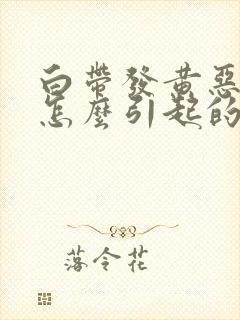 白帶發黃惡
怎麼引起的
落令花